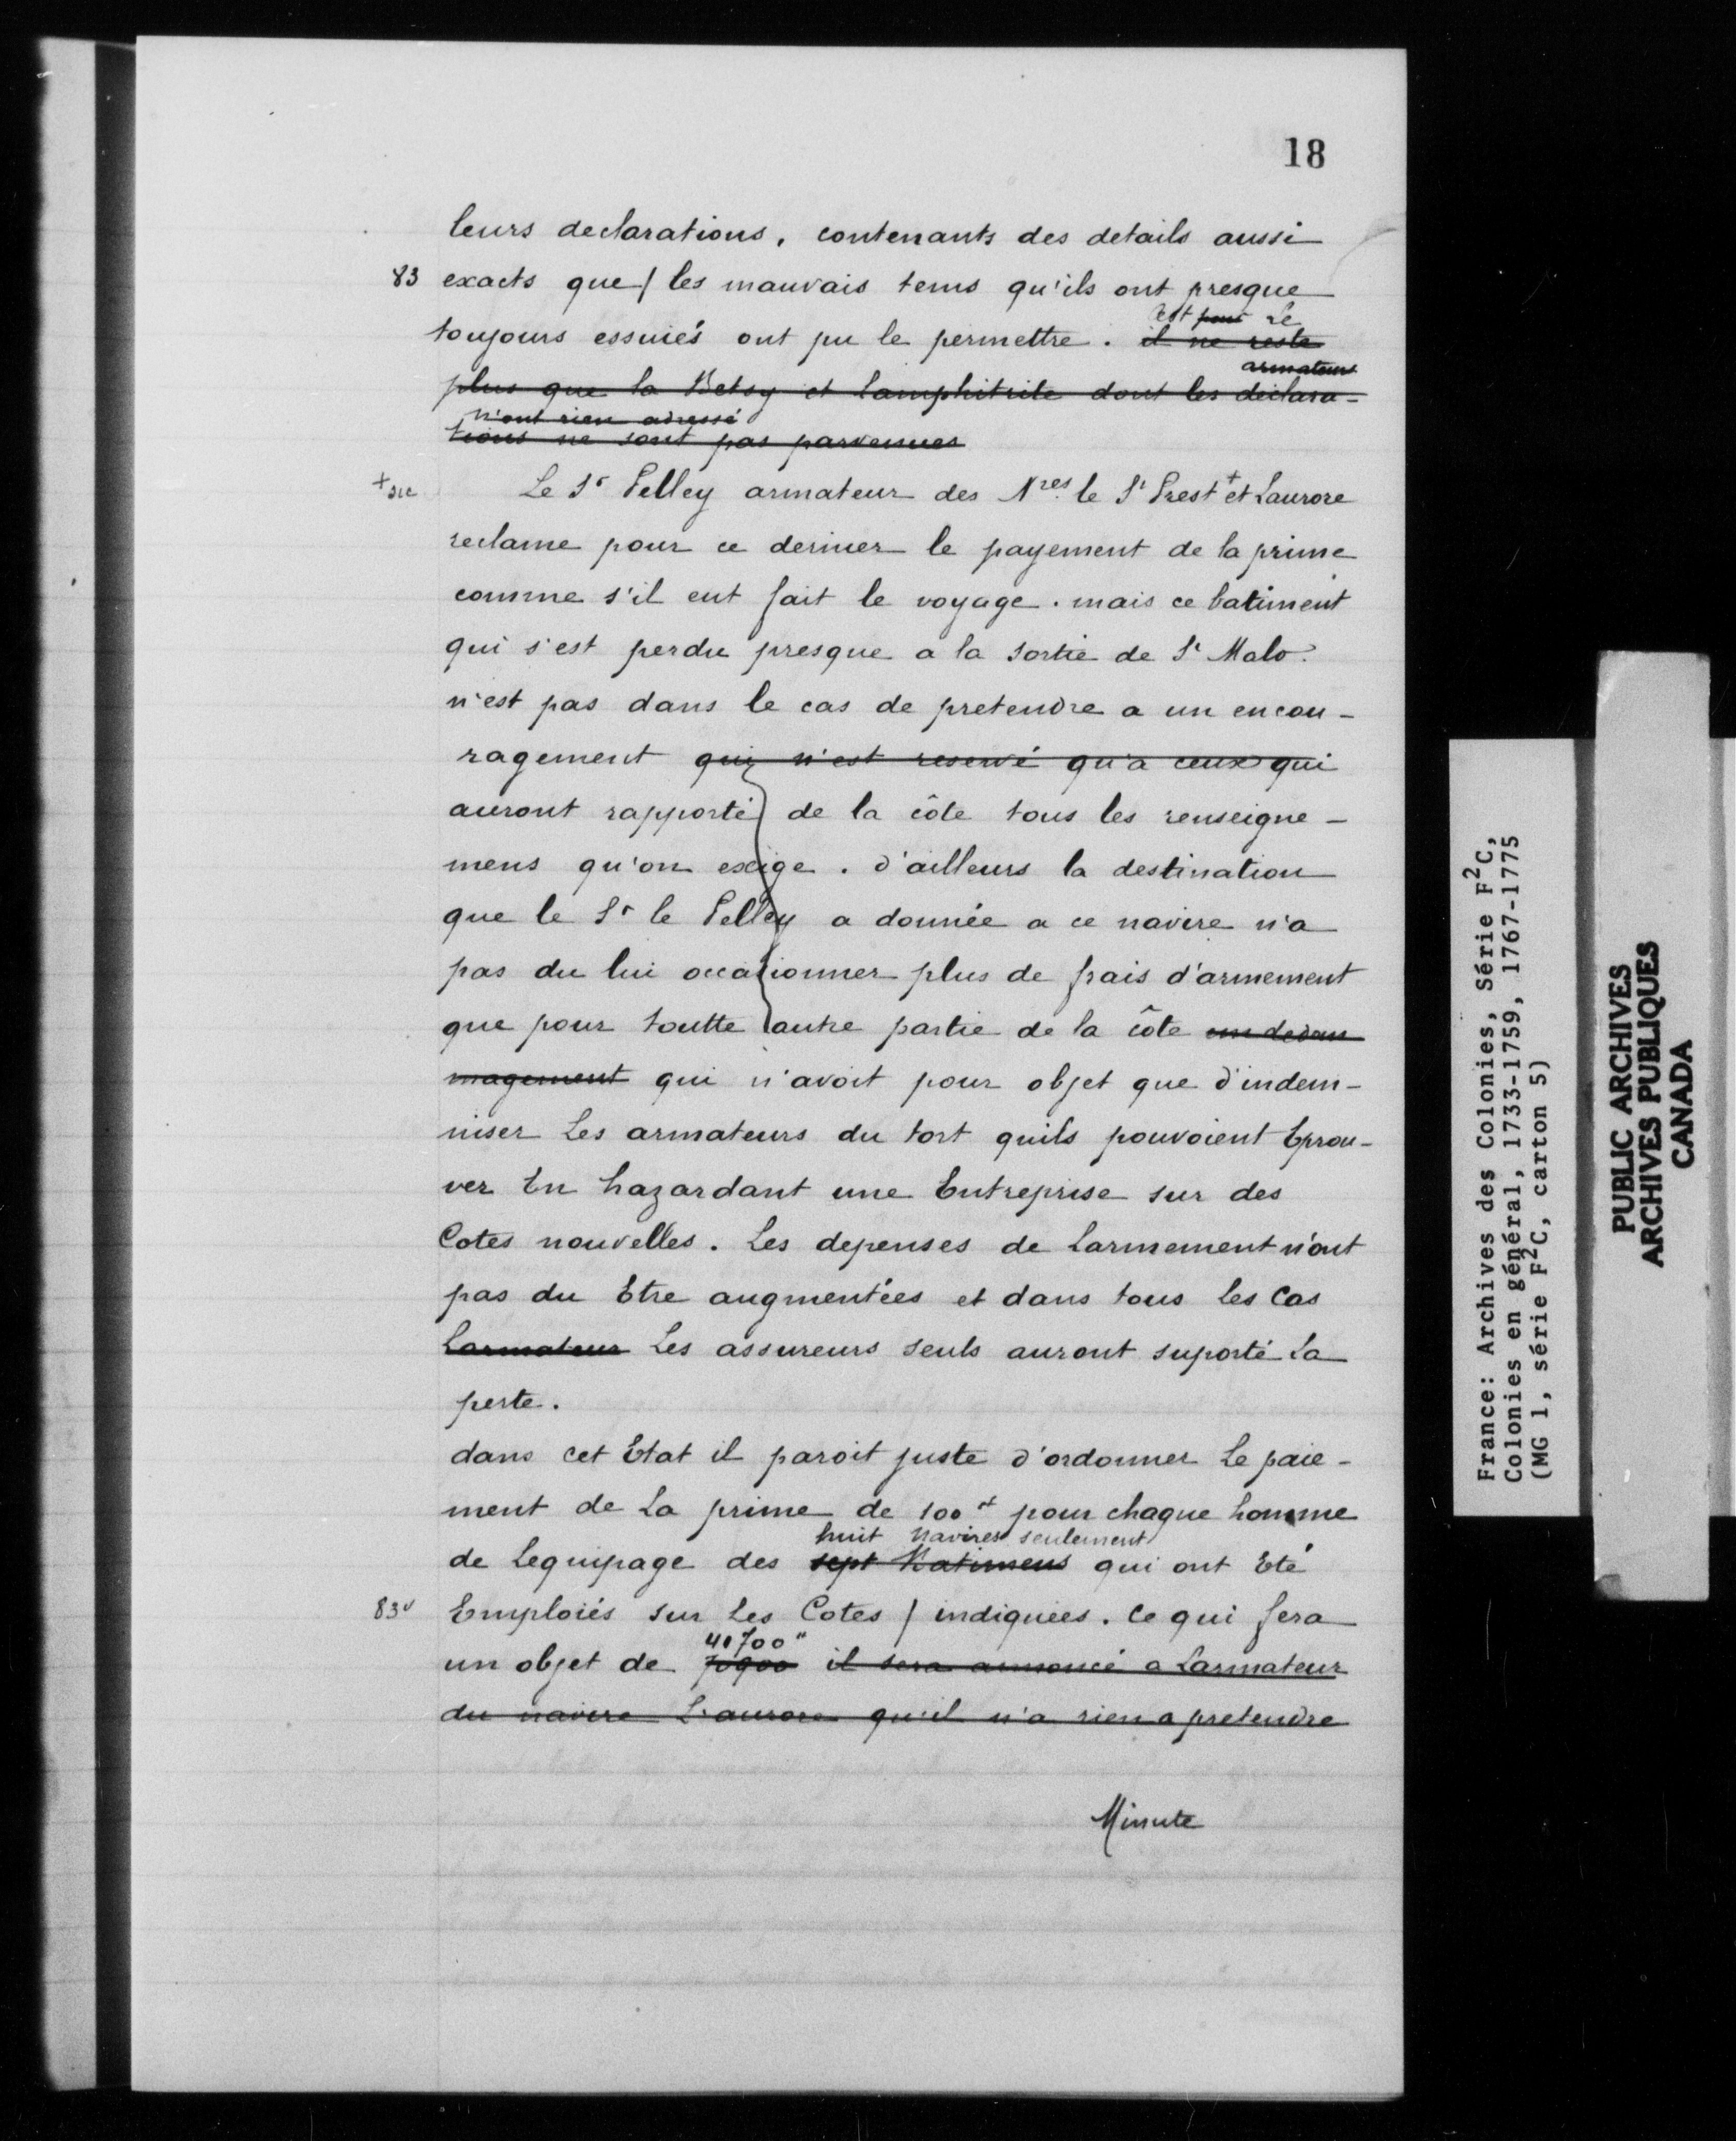 18
leurs declarations, contenants des details aussi
83 exacts que / les mauvais tems qu'ils ont presque
est pour Le
toujours essuiés ont pu le permettre. il ne reste
armateurs
plus que la Betsy et lamphitrite dont les declara-
n'ont rien adressé
tions ne sont pas parvenues
+ sic Le Sr Pelley armateur des Nres le St Prest + et Laurore
reclame pour ce dernier le payement de la prime
comme s'il eut fait le voyage. mais ce batiment
qui s'est perdu presque a la sortie de St Malo
n'est pas dans le cas de pretendre a un encou-
ragement qui n'est reservé qu'a ceux qui
auront rapporté de la côte tous les renseigne-
mens qu'on exige. d'ailleurs la destination
que le Sr le Pelley a donnée a ce navire n'a
pas du lui occasionner plus de frais d'armement
que pour toutte autre partie de la côte un dedom
magement qui n'avoit pour objet que d'indem-
niser Les armateurs du tort quils pouvoient Eprou-
ver En hazardant une Entreprise sur des
Cotes nouvelles. Les depenses de Larmement n'ont
pas du Etre augmentées et dans tous Les Cas
Larmateur Les assureurs seuls auront suporté La
perte.
dans cet Etat il paroit juste d'ordonner Le paie-
ment de La prime de 100# pour chaque homme
huit navires seulement
de Lequipage des sept Batimens qui ont Eté
83v Emploiés sur Les Cotes / indiquées. Ce qui fera
41700"
un objet de 70900 il sera annoncé a Larmateur
du navire L'aurore qu'il n'a rien a pretendre
Minute
France: Archives des Colonies, Série F2C,
Colonies en général, 1733-1759, 1767-1775
(MG 1, série F2C, carton 5)
PUBLIC ARCHIVES
ARCHIVES PUBLIQUES
CANADA